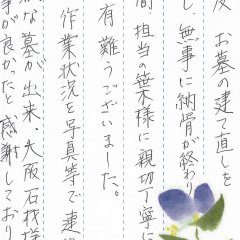 お墓の建て直しを
し、無事に納骨が終わり
間 担当の葉様に親切丁寧に
有難うございました。
作業状況を写真等で連
な墓が出来、大阪石材様
事が良かったと感謝しており